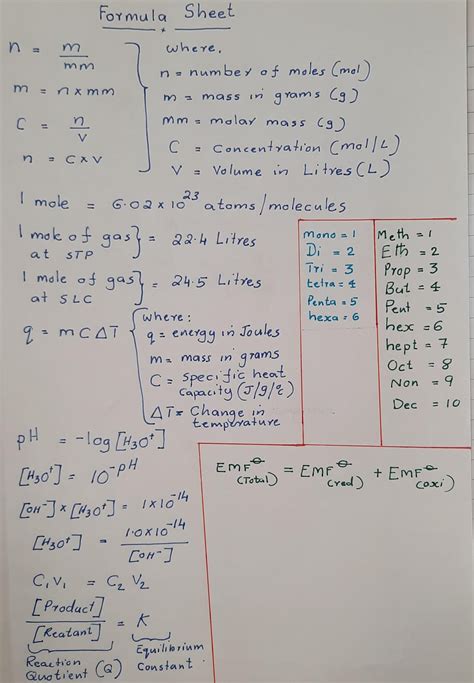 Formula Sheet
n = m/mm
m = n x mm
C = n/v
n = C x V
where,
n = number of moles (mol)
m = mass in grams (g)
mm = molar mass (g)
C = Concentration (mol/L)
V = Volume in Litres (L)
1 mole = 6.02 x 10²³ atoms/molecules
1 mole of gas at STP } = 22.4 Litres
1 mole of gas at SLC } = 24.5 Litres
q = m C Δ T
where:
q = energy in Joules
m = mass in grams
C = specific heat
capacity (J/g/°c)
ΔT = Change in
temperature
mono = 1
Di = 2
Tri = 3
tetra = 4
Penta = 5
hexa = 6
Meth = 1
Eth = 2
Prop = 3
But = 4
Pent = 5
hex = 6
hept = 7
Oct = 8
Non = 9
Dec = 10
pH = -log [H₃O⁺]
[H₃O⁺] = 10^-pH
[OH⁻] x [H₃O⁺] = 1 x 10⁻¹⁴
[H₃O⁺] = 1.0 x 10⁻¹⁴/[OH⁻]
C₁V₁ = C₂V₂
[Product]/[Reatant] = K
Reaction
Quotient (Q)
Equilibrium
Constant
EMF⊖(Total) = EMF⊖(red) + EMF⊖(oxi)